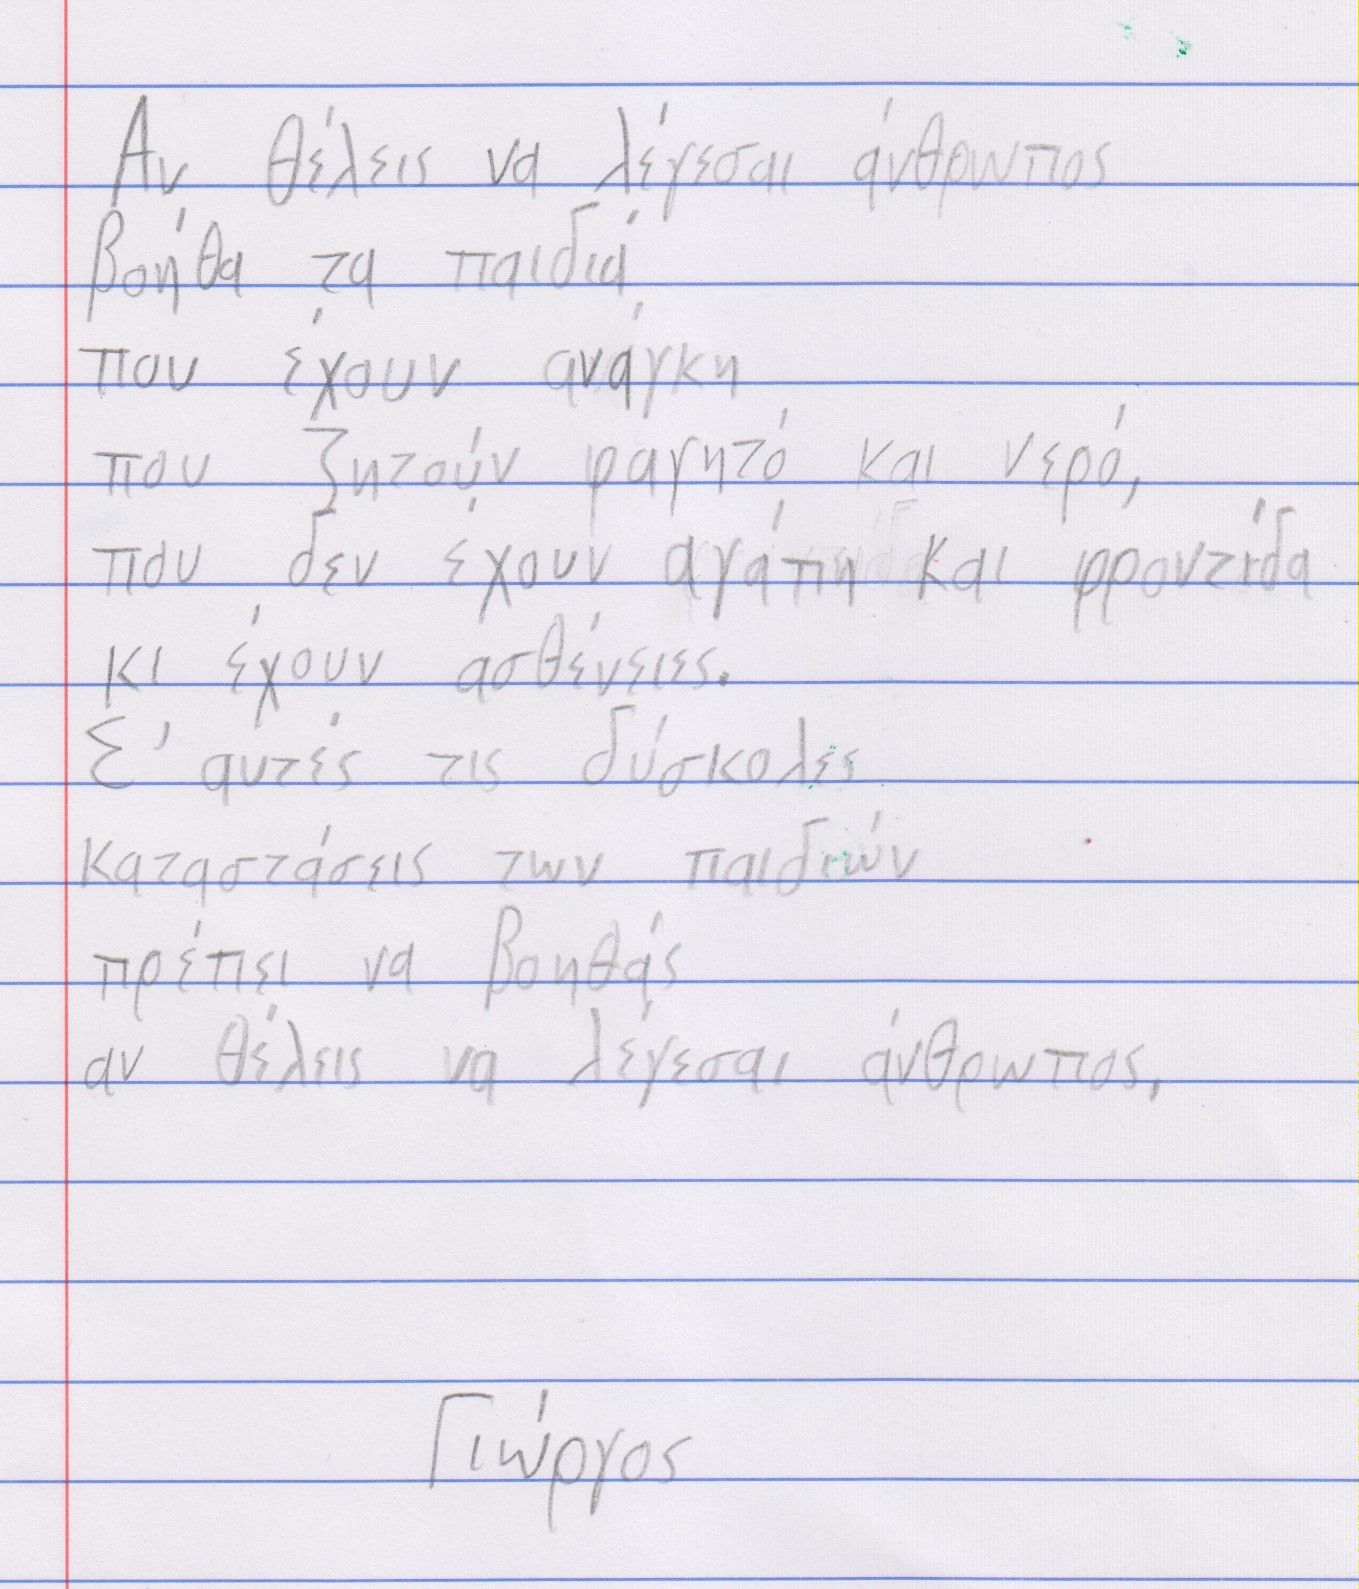 Αν θέλεις να λέγεσαι άνθρωπος
βοήθα τα παιδιά
που έχουν ανάγκη
που ζητούν φαγητό και νερό,
που δεν έχουν αγάπη και φροντίδα
κι έχουν ασθένειες.
Σ' αυτές τις δύσκολες
καταστάσεις των παιδιών
πρέπει να βοηθάς
αν θέλεις να λέγεσαι άνθρωπος.
Γιώργος